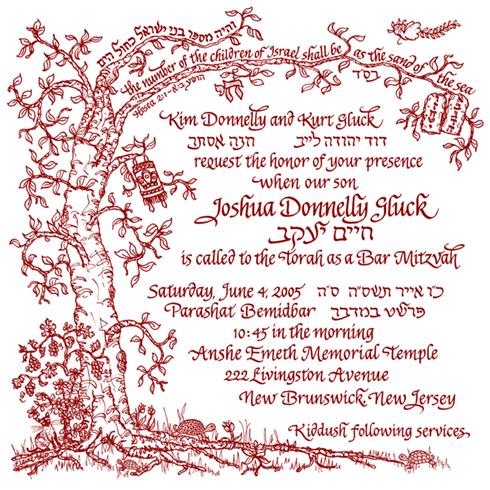 והיה מספר בני ישראל כחול הים
the number of the children of Israel shall be as the sand of the sea
Hosea 2:1
בס״ד
Kim Donnelly and Kurt Gluck
חנה אסתר דוד יהודה לייב
request the honor of your presence
when our son
Joshua Donnelly Gluck
חיים יעקב
is called to the Torah as a Bar Mitzvah
Saturday, June 4, 2005 כ״ו אייר תשס״ה
Parashat Bemidbar פרשת במדבר
10:45 in the morning
Anshe Emeth Memorial Temple
222 Livingston Avenue
New Brunswick, New Jersey
Kiddush following services